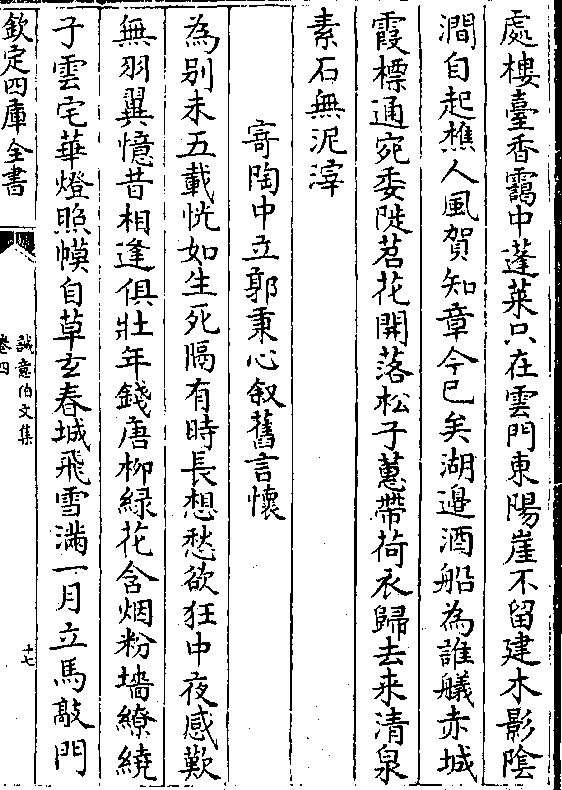 處樓臺香靄中蓬萊只在雲門東陽崖不留建木影陰
澗自起樵人風賀知章今已矣湖邉酒船為誰艤赤城
霞標通宛委陡茗花開落松子蕙帶荷衣歸去来清泉
素石無泥滓
寄陶中立郭秉心叙舊言懷
為别未五載恍如生死隔有時長想愁欲狂中夜感歎
無羽翼憶昔相逢俱壯年錢唐柳緑花含烟粉墻繚繞
子雲宅華燈照幙自草玄春城飛雪滿一月立馬敲門
欽定四庫全書
誠意伯文集
卷四
十七